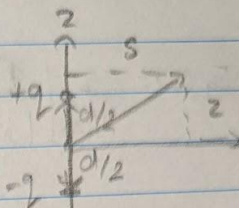 z
s
+q
d/2
z
d/2
-q